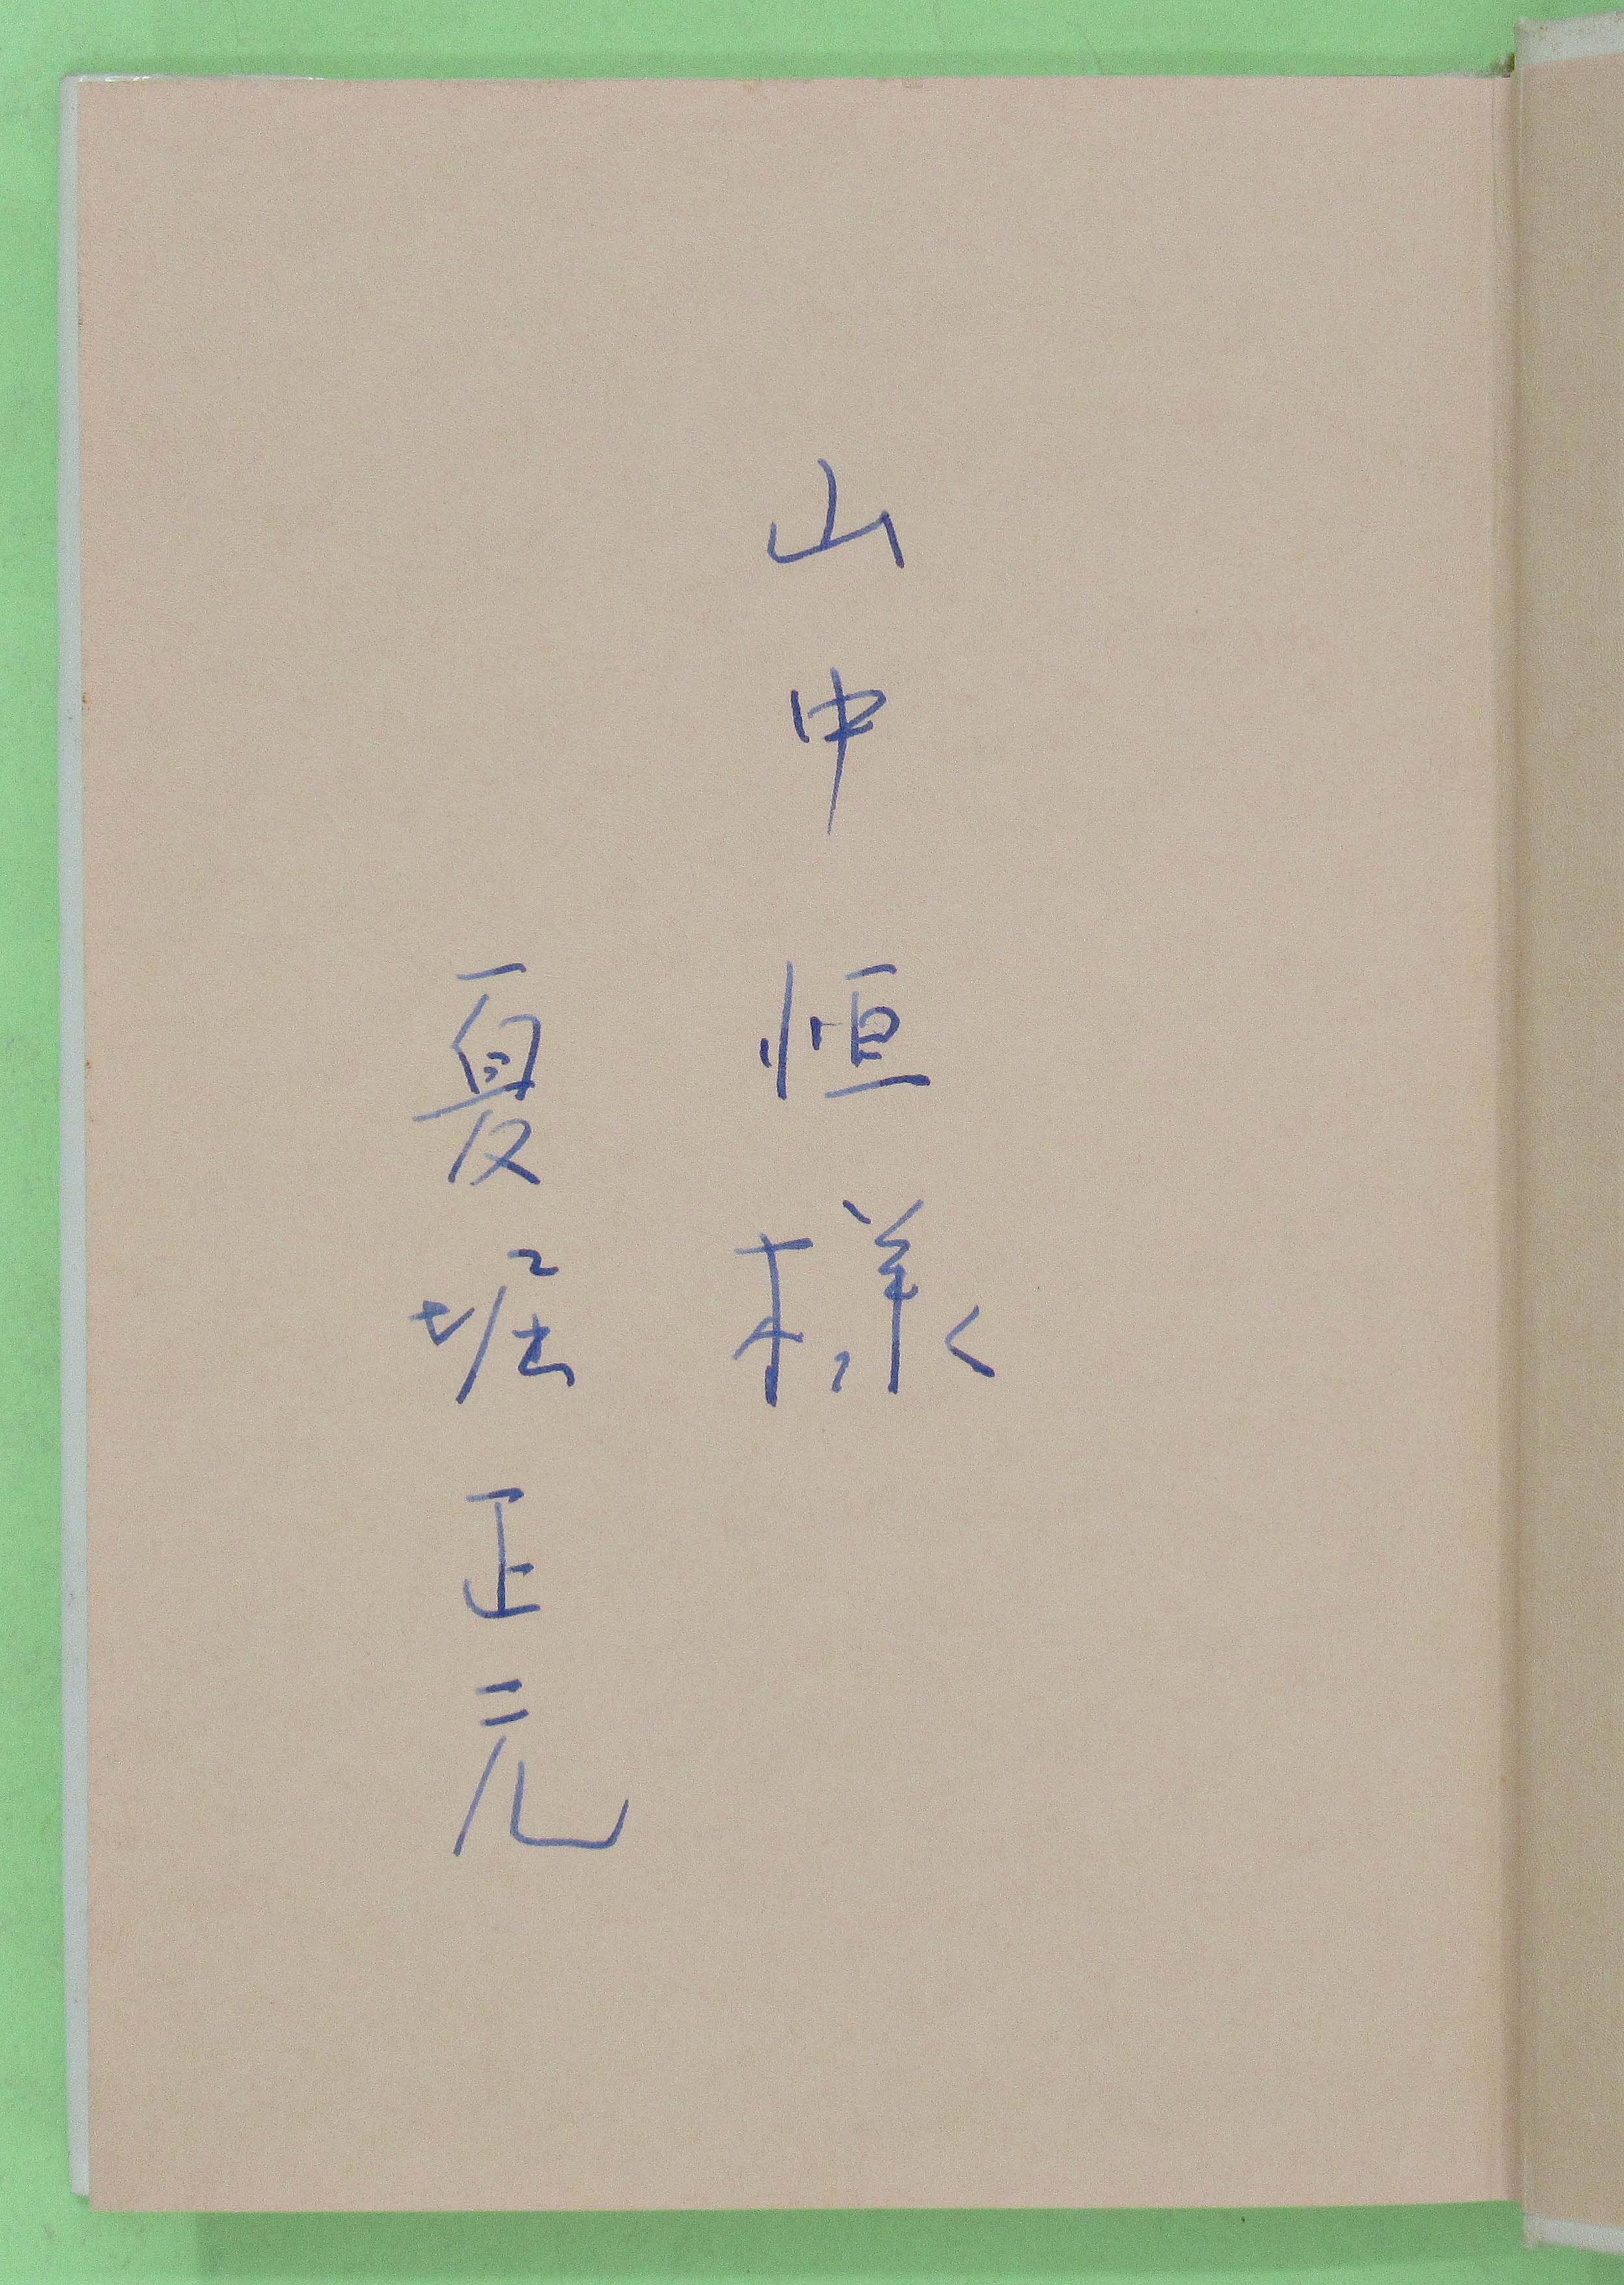 山中恒様
夏堀正元